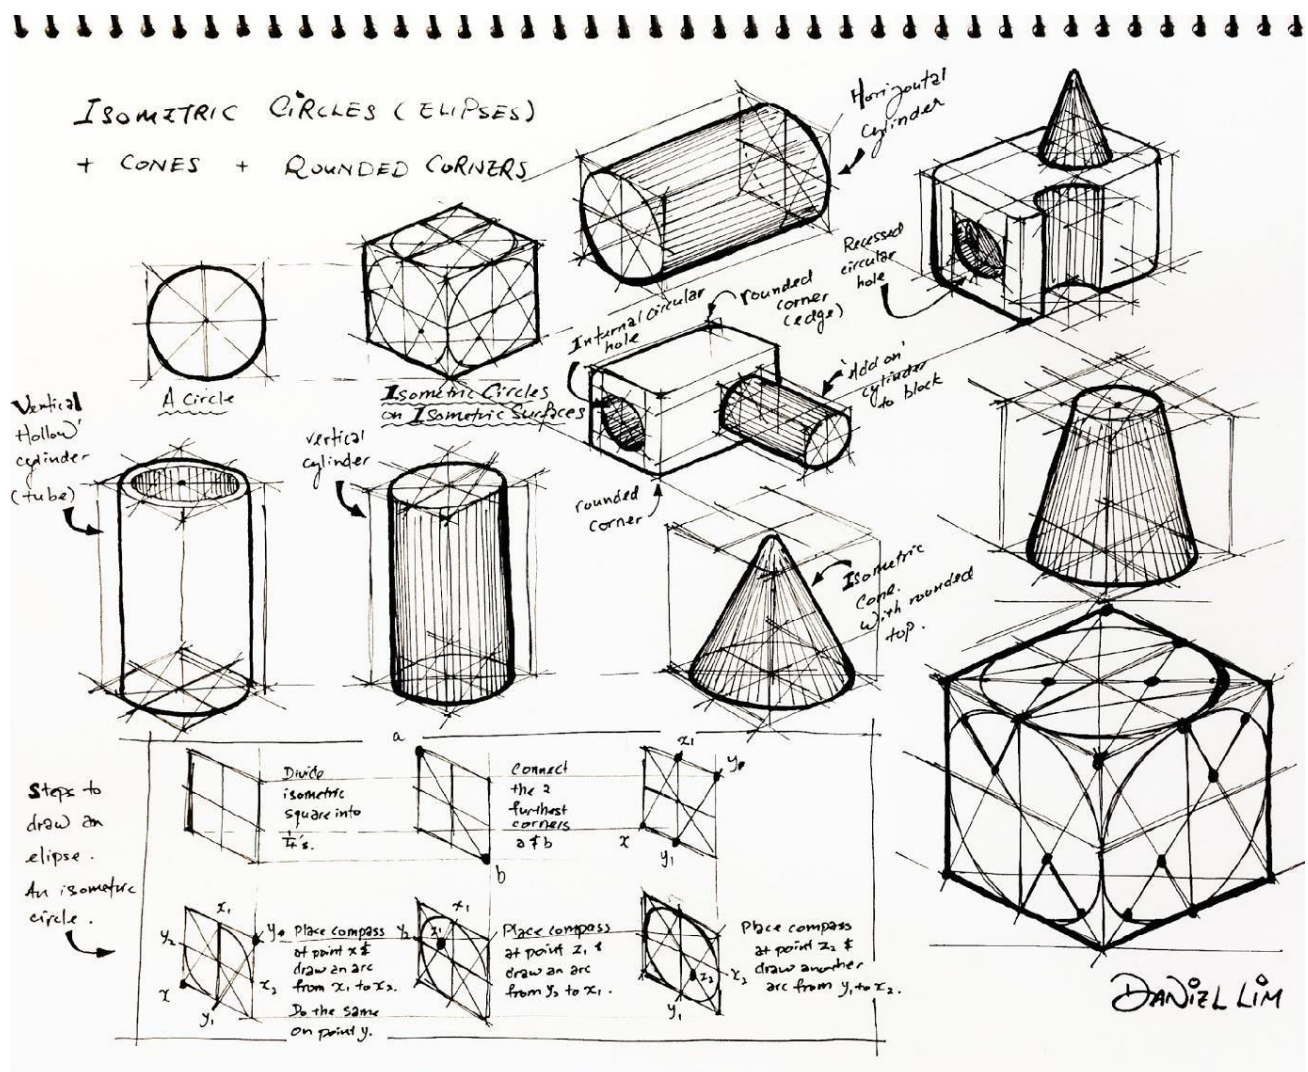 ISOMETRIC CIRCLES (ELIPSES)
+ CONES + ROUNDED CORNERS
Horizontal
cylinder
Recessed
circular
hole
Internal circular
hole
rounded
corner
(edge)
'Add on'
cylinder
to block
A circle
Isometric Circles
on Isometric Surfaces
Vertical
'Hollow'
cylinder
(tube)
vertical
cylinder
rounded
corner
Isometric
Cone.
With rounded
top.
Steps to
draw an
elipse.
An isometric
circle.
Divide
isometric
square into
¼'s.
a
b
Connect
the 2
furthest
corners
a & b
x1
y
x
y1
x1
y2
y
x
x2
y1
Place compass
at point x &
draw an arc
from x1 to x2.
Do the same
on point y.
x1
y2
z1
Place compass
at point z1 &
draw an arc
from y2 to x1.
z2
x2
y1
Place compass
at point z2 &
draw another
arc from y1 to x2.
DANIEL LIM